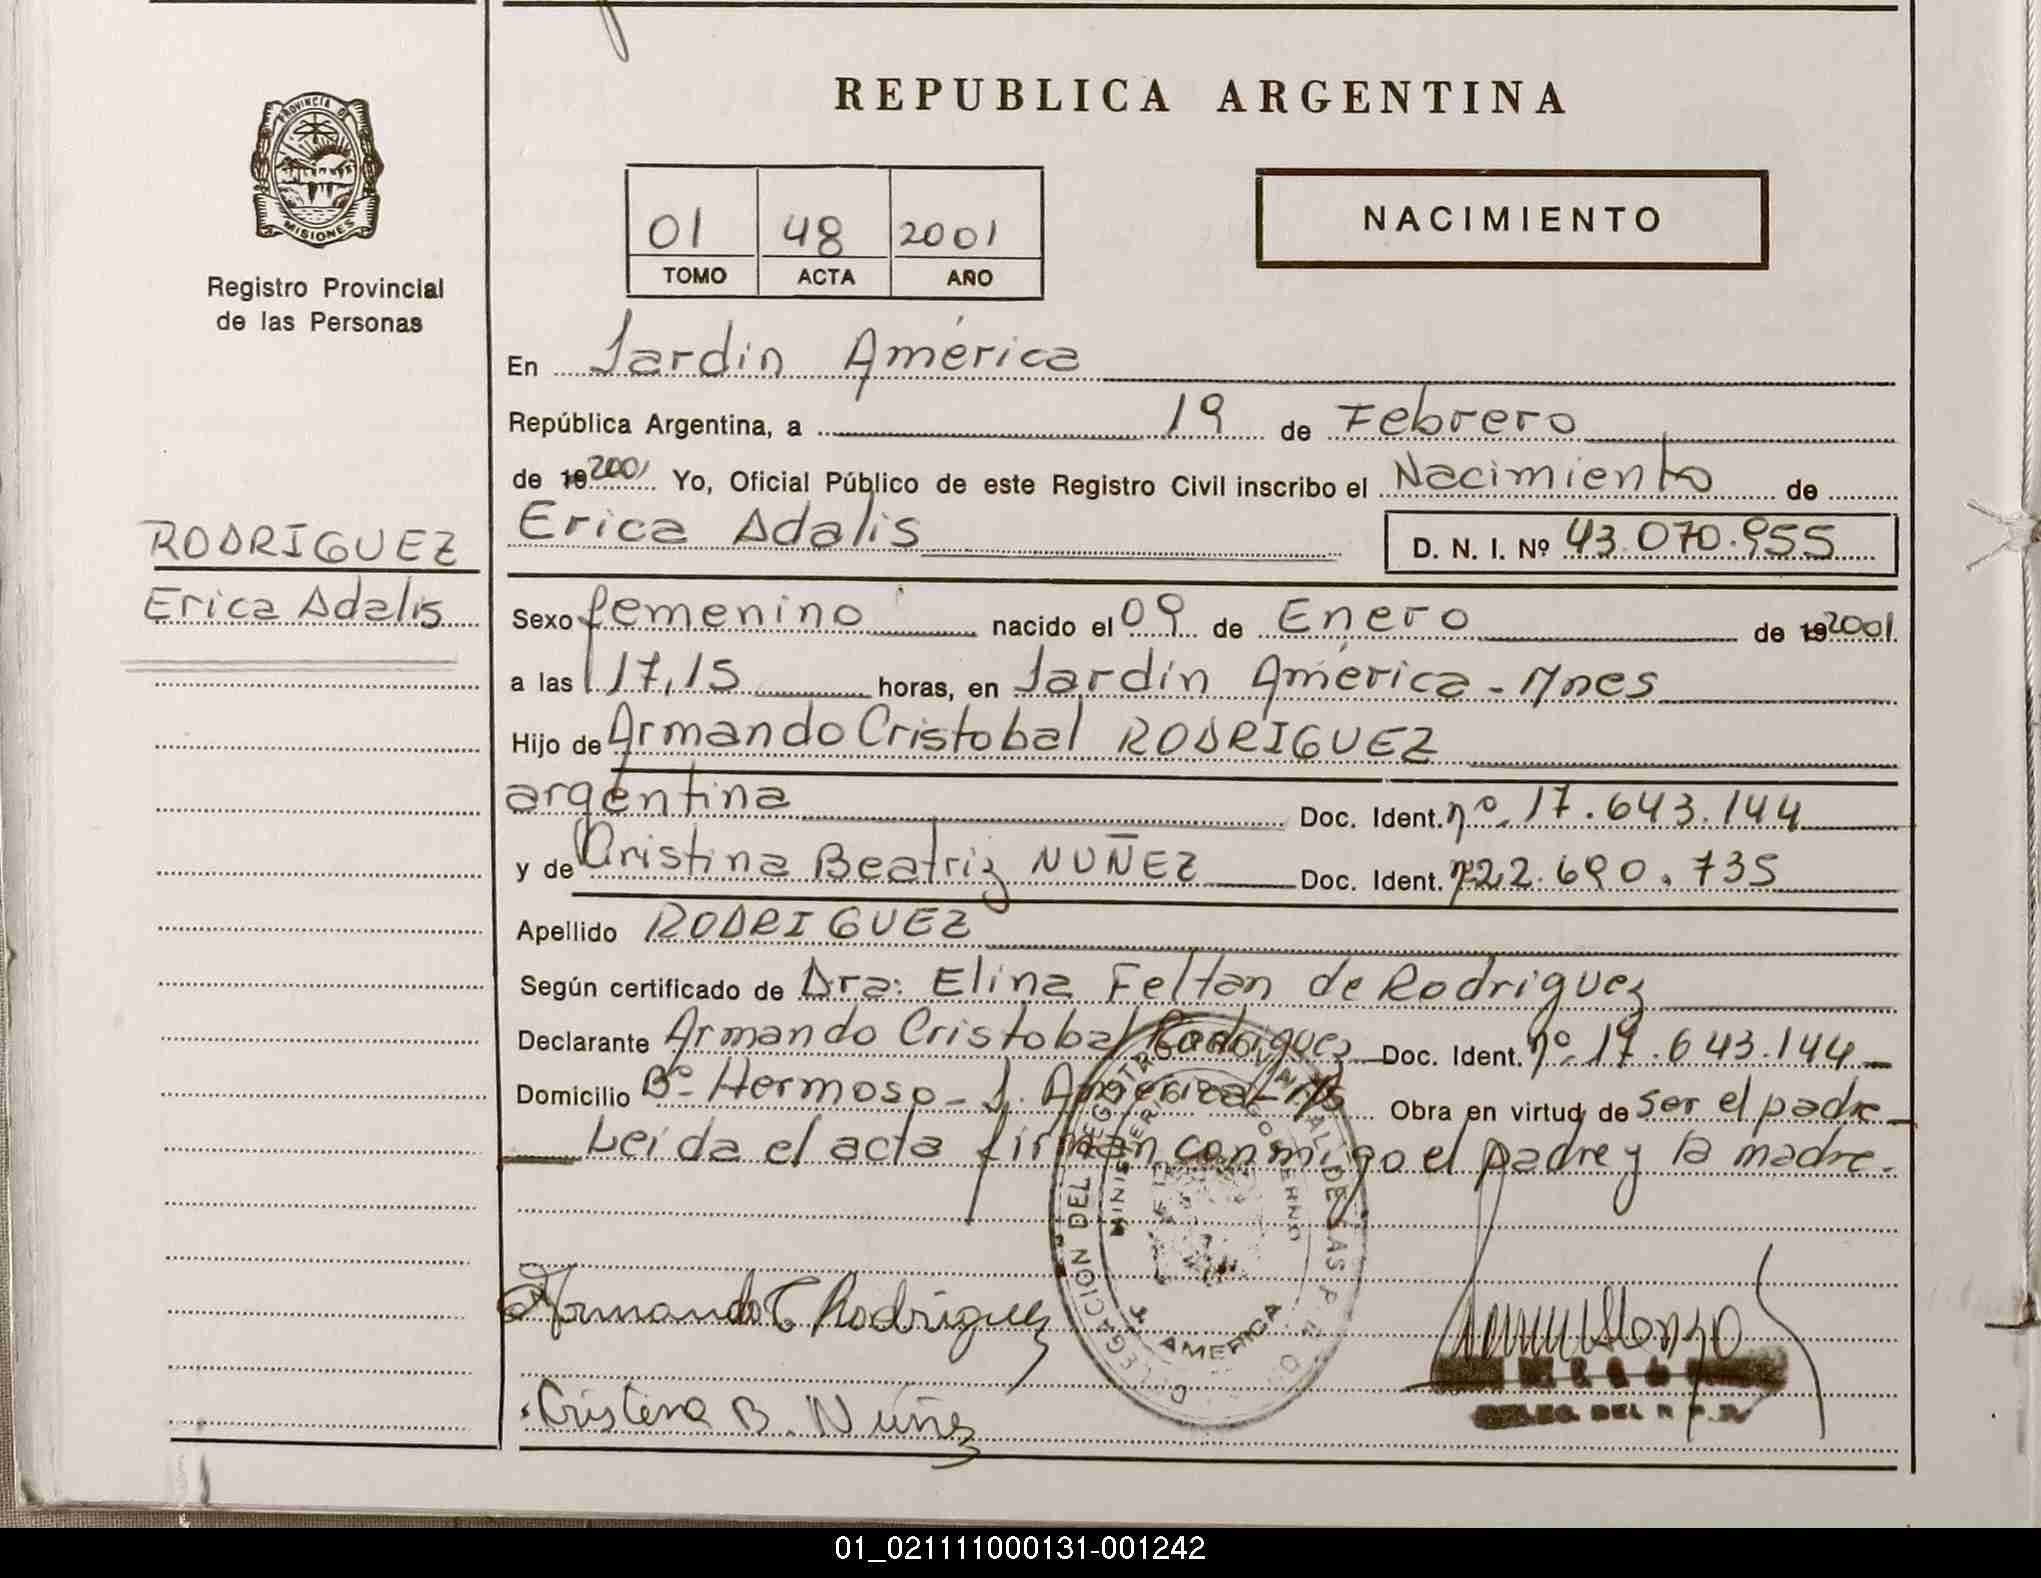 REPUBLICA ARGENTINA
PROVINCIA DE
MISIONES
Registro Provincial
de las Personas
01 48 2001
TOMO ACTA AÑO
NACIMIENTO
En Jardín América
República Argentina, a 19 de Febrero
de 19 2001 Yo, Oficial Público de este Registro Civil inscribo el Nacimiento de
Erica Adalis D. N. I. Nº 43.070.955
RODRIGUEZ
Erica Adalis
Sexo femenino nacido el 09 de Enero de 19 2001
a las 17,15 horas, en Jardín América - Mnes
Hijo de Armando Cristobal RODRIGUEZ
argentina Doc. Ident. nº 17.643.144
y de Cristina Beatriz NUÑEZ Doc. Ident. nº 22.690.735
Apellido RODRIGUEZ
Según certificado de Dra: Elina Feltan de Rodriguez
Declarante Armando Cristobal Rodriguez Doc. Ident. nº 17.643.144
Domicilio Bº Hermoso - J. América - Ms Obra en virtud de ser el padre
Leida el acta firman conmigo el padre y la madre.
DELEGACION DEL REGISTRO PROVINCIAL DE LAS
MINISTERIO GOBIERNO
AMERICA
Armando C Rodriguez
Cristina B. Núñez
DELEG. DEL R.P.P.
01_021111000131-001242